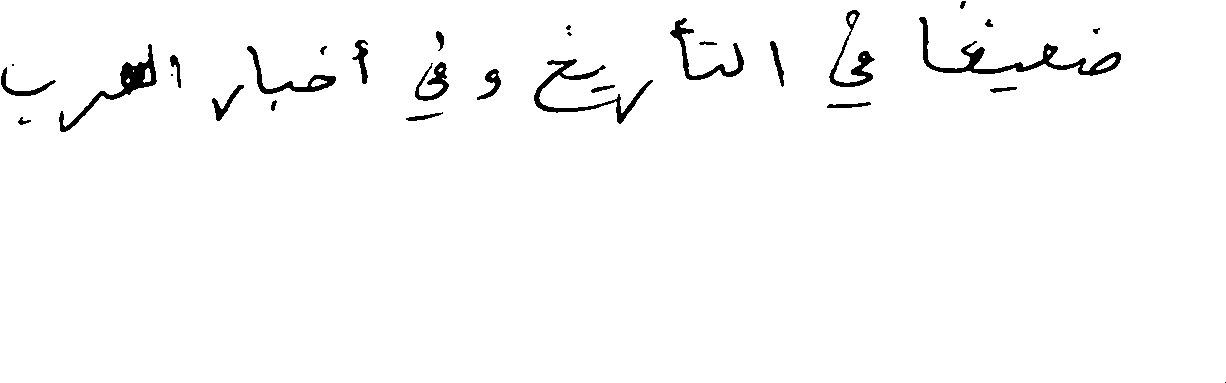 ضعيفا في التأريخ وفي أخبار العرب